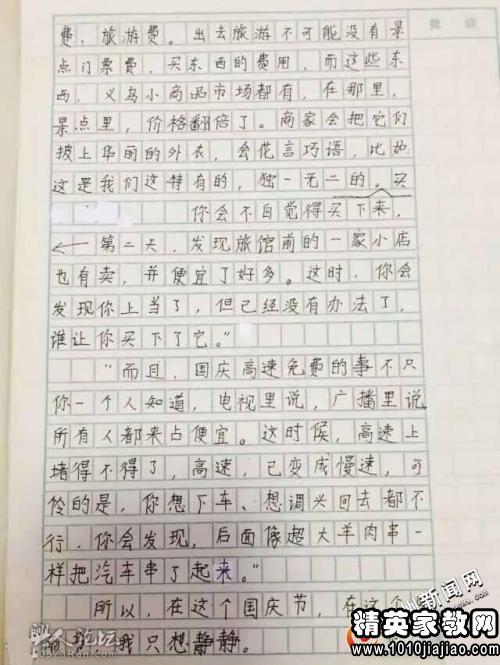 费，旅游费。出去旅游不可能没有景
点门票费，买东西的费用，而这些东
西，义乌小商品市场都有，在那里，
景点里，价格翻倍了。商家会把它们
披上华丽的外衣，会花言巧语，比如
这是我们这特有的，独一无二的。买
你会不自觉得买下来，
第二天，发现旅馆前的一家小店
也有卖，并便宜了好多。这时，你会
发现你上当了，但已经没有办法了，
谁让你买下了它。”
“而且，国庆高速免费的事不只
你一个人知道，电视里说，广播里说
所有人都来占便宜。这时候，高速上
堵得不得了，高速，已变成慢速，可
怜的是，你想下车、想调头回去都不
行，你会发现，后面像超大羊肉串一
样把汽车串了起来。”
所以，在这个国庆节，在这个
我只想静静。
论坛
新闻网
精英家教网
www.1010jiajiao.com